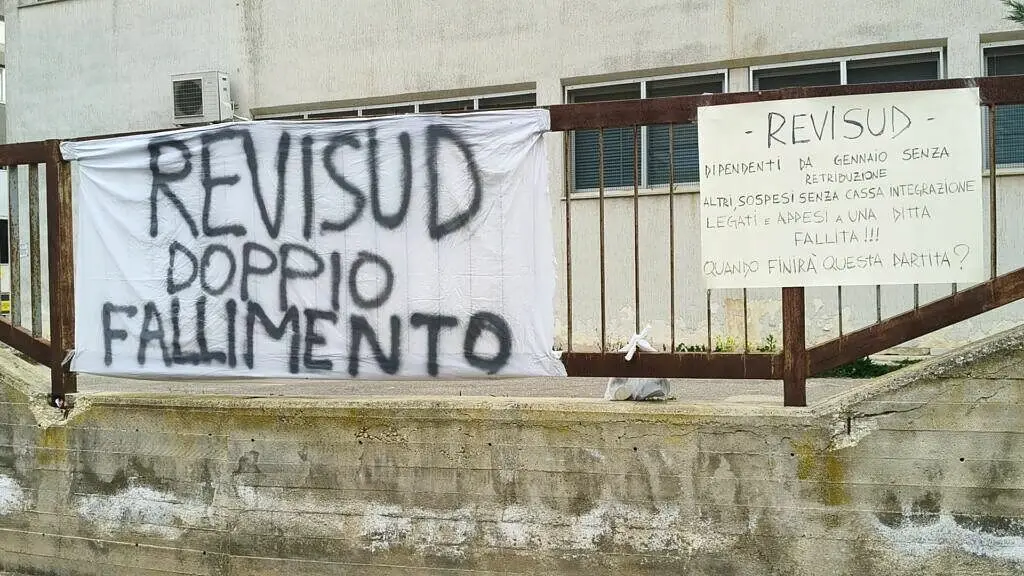 REVISUD
DOPPIO
FALLIMENTO
- REVISUD -
DIPENDENTI DA GENNAIO SENZA
RETRIBUZIONE
ALTRI, SOSPESI SENZA CASSA INTEGRAZIONE
LEGATI E APPESI A UNA DITTA
FALLITA!!!
QUANDO FINIRÀ QUESTA PARTITA?